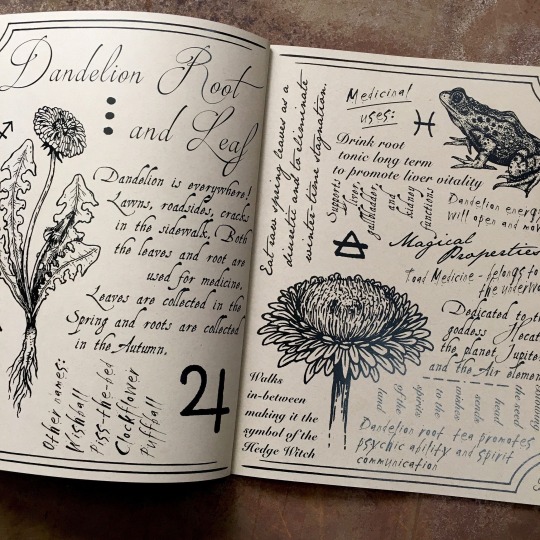 Dandelion Root
and Leaf
Dandelion is everywhere!
Lawns, roadsides, cracks
in the sidewalk. Both
the leaves and root are
used for medicine.
Leaves are collected in the
Spring and roots are collected
in the Autumn.
Other names:
Wishball
Piss-the-bed
Clockflower
Puffball
Eat raw spring leaves as a
diuretic and to eliminate
winter-tense stagnation.
Medicinal
uses:
Drink root
tonic long term
to promote liver vitality
Supports
liver
gallbladder,
and
kidney
functions
Dandelion energy
will open and
Magical
Properties
Toad Medicine - belongs to
the
Dedicated to
goddess
the planet Jupite
and the Air elemen
Walks
in-between
making it the
symbol of the
Hedge Witch
seed
head
sends
wishes
to the
spirits
of the
land
Dandelion root tea promotes
psychic ability and spirit
communication